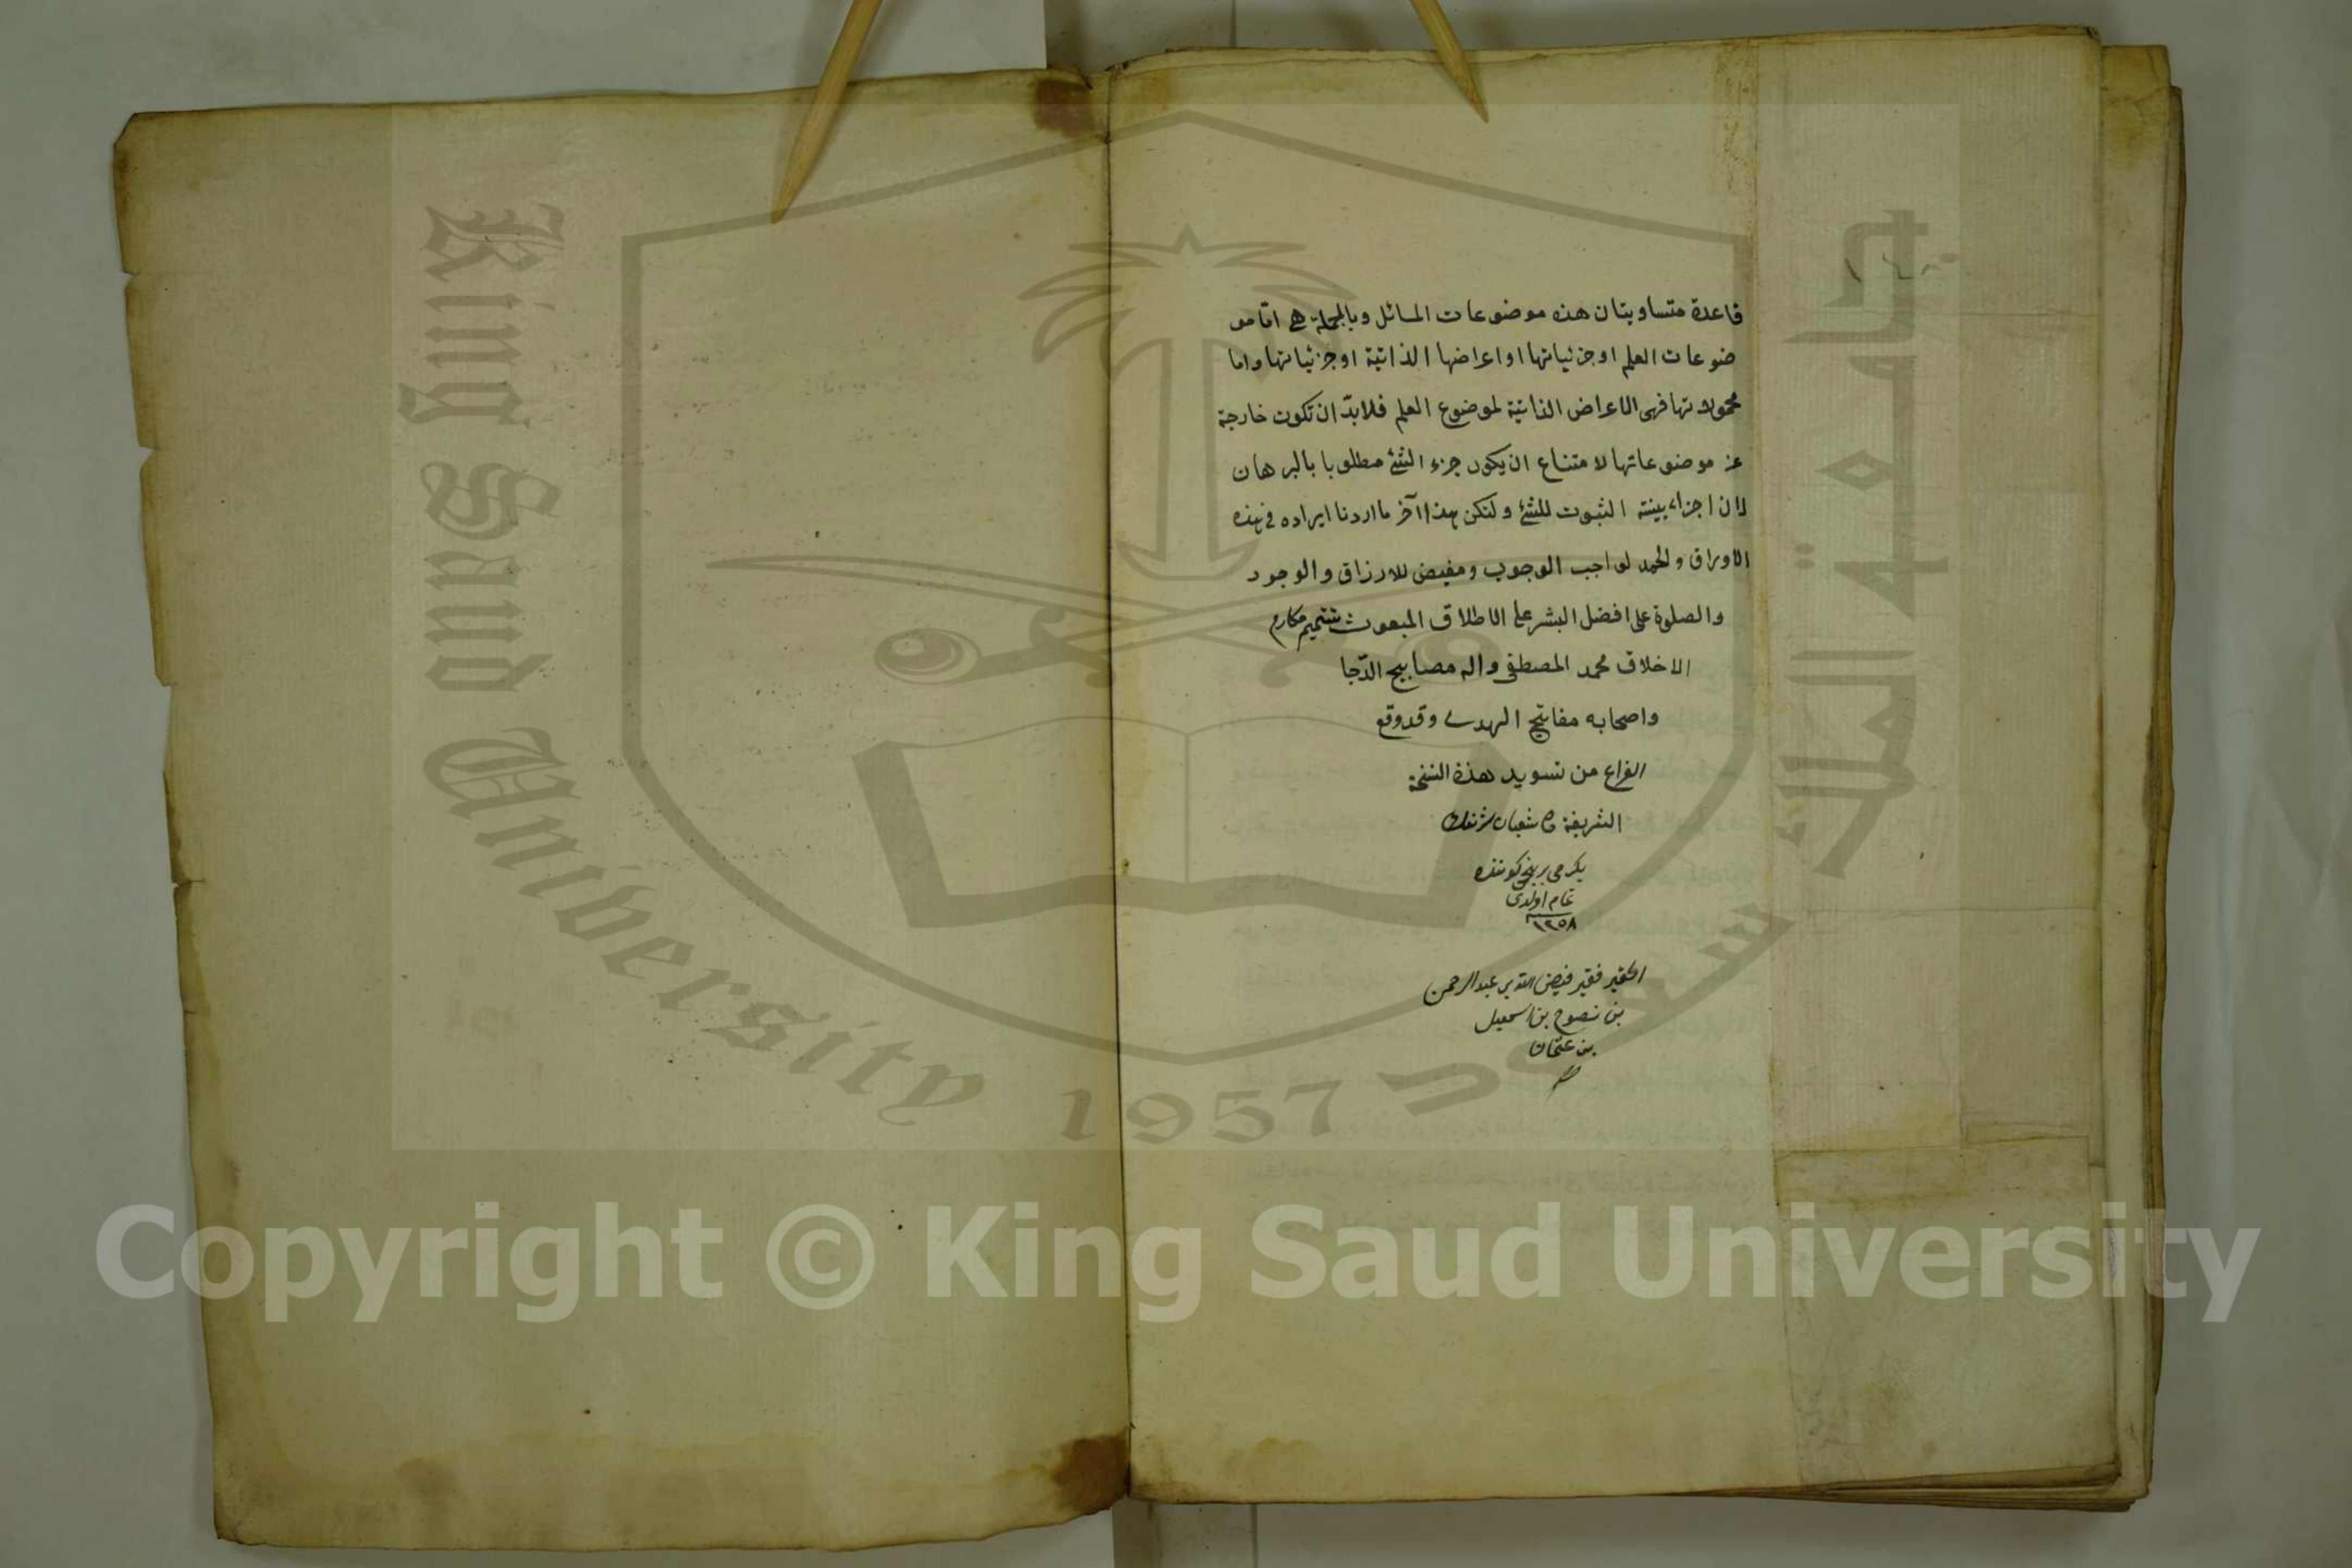 قاعدة متساويتان هذه موضوعات المسائل وبالجملة هى اما مو
ضوعات العلم او جزئياتها او اعراضها الذاتية او جزئياتها واما
محمولاتها فهى الاعراض الذاتية لموضوع العلم فلابدّ ان تكون خارجة
عن موضوعاتها لامتناع ان يكون جزء الشئ مطلوبا بالبرهان
لان اجزاء بينة الثبوت للشئ ولنكن هذا آخر ما اردنا ايراده فى هذه
الاوراق والحمد لواجب الوجوب ومفيض للارزاق والوجود
والصلوة على افضل البشر على الاطلاق المبعوث تتميم مكارم
الاخلاق محمد المصطفى واله مصابيح الدّجا
واصحابه مفاتيح الهدى وقد وقع
الفراغ من تسويد هذه النسخة
الشريفة شعبان
يكرمى برنجى كوننده
تمام اولدى
١٢٥٨
الحقير فقير فيض الله بن عبد الرحمن
بن نصوح بن اسمعيل
بن عثمان
King Saud University 1957
جامعة الملك سعود
Copyright © King Saud University